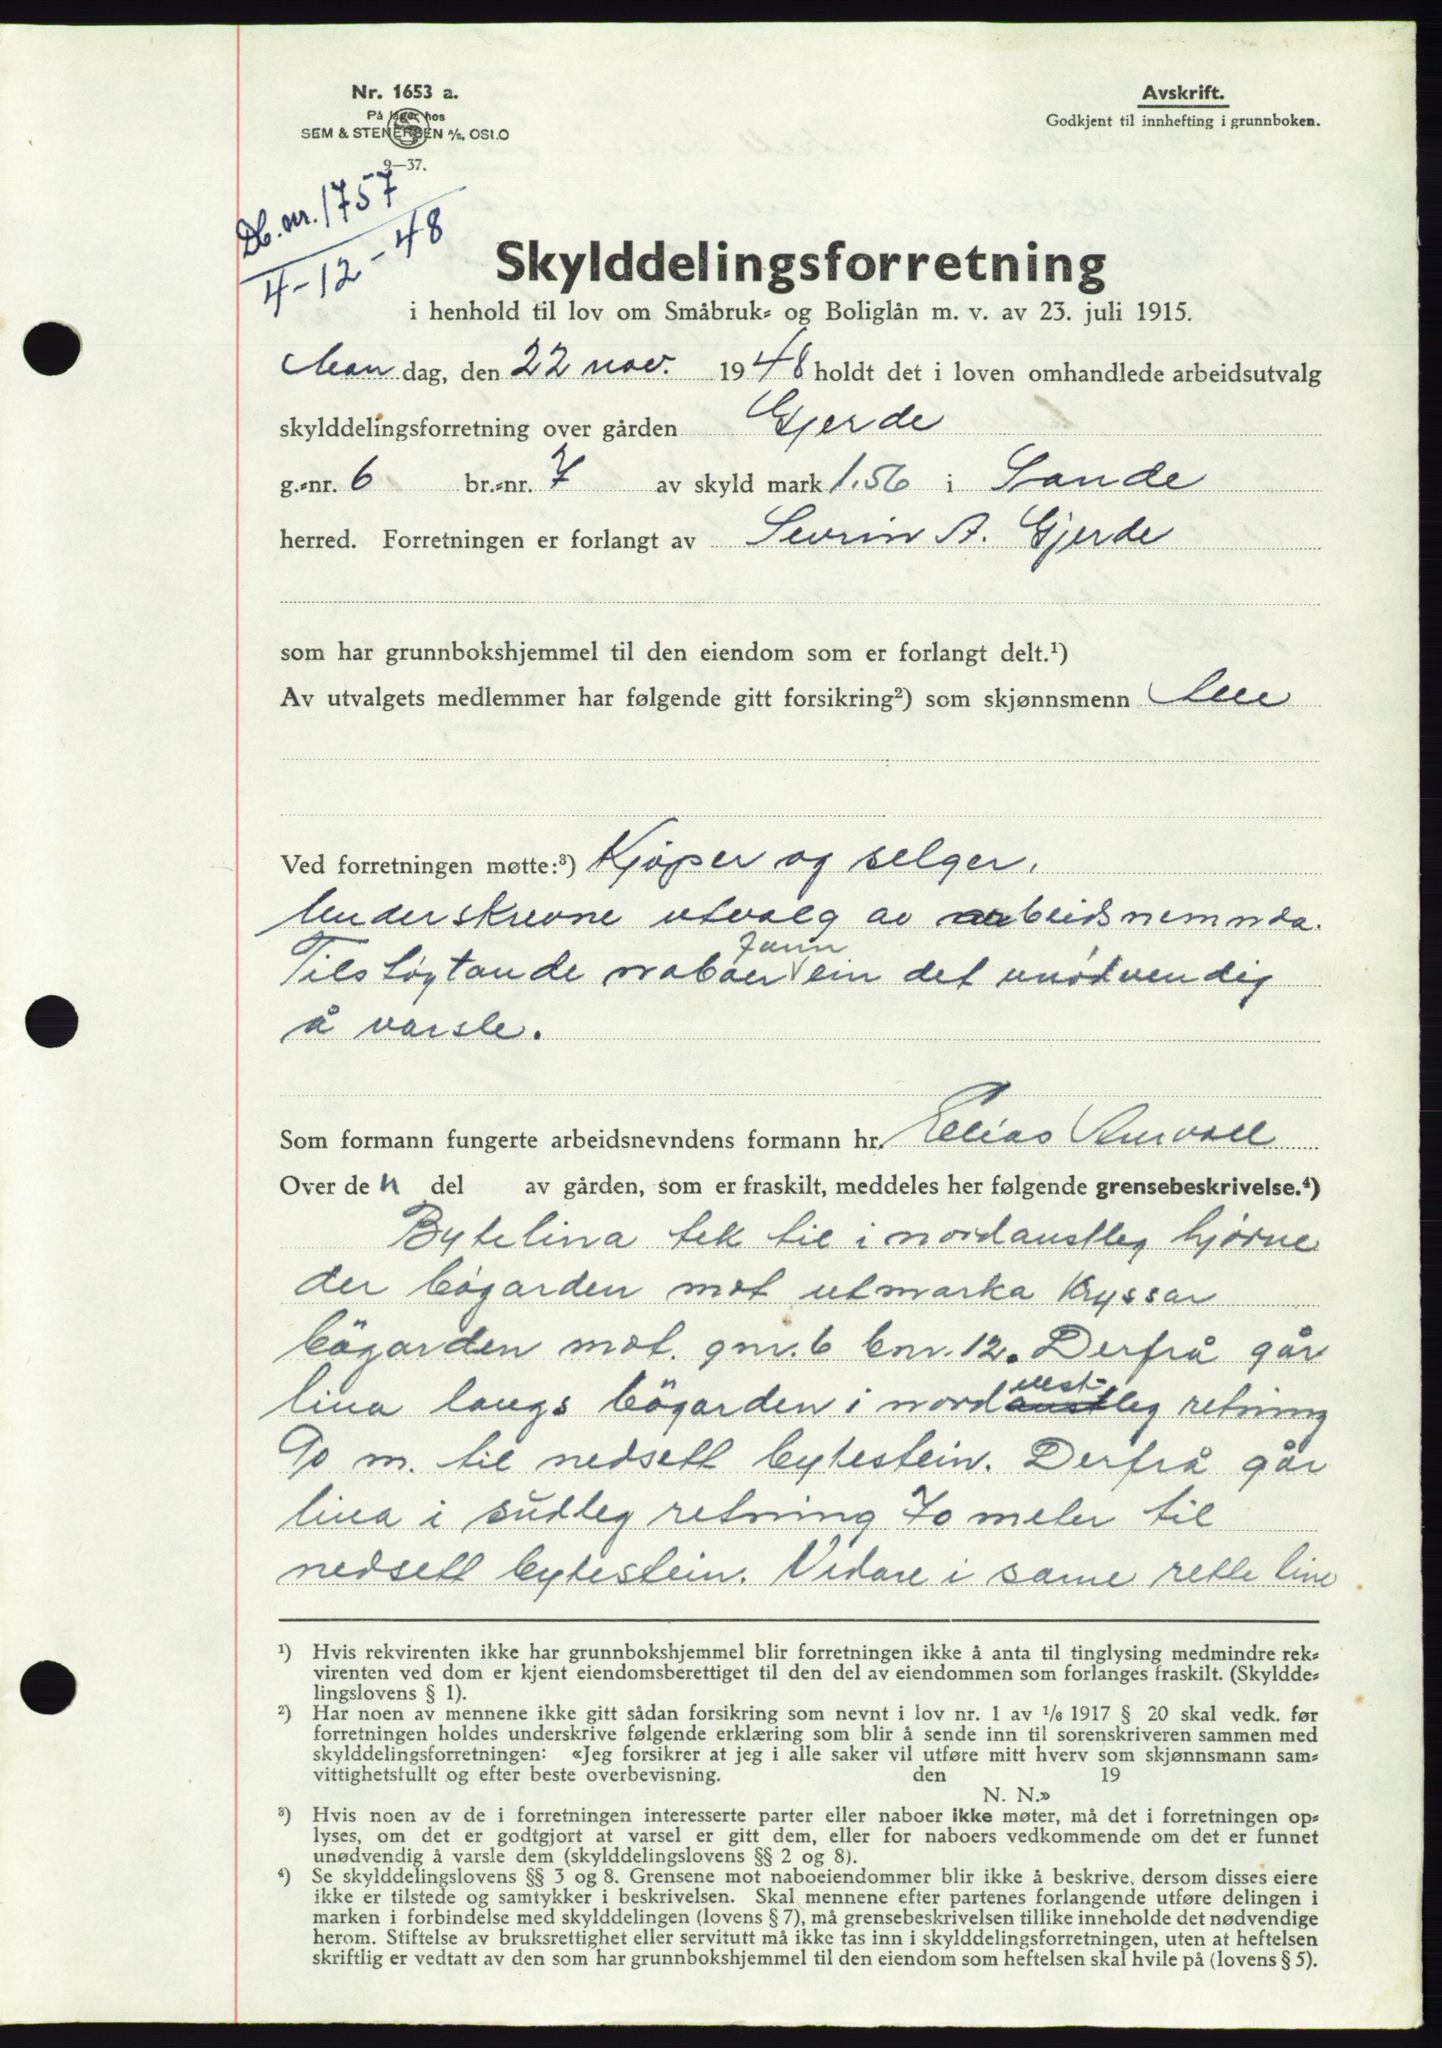 Nr. 1653 a.
På lager hos
SEM & STENERSEN A/S, OSLO
9—37.
Avskrift.
Godkjent til innhefting i grunnboken.
Db. nr. 1757
4-12-48
Skylddelingsforretning
i henhold til lov om Småbruk- og Boliglån m. v. av 23. juli 1915.
Man dag, den 22 nov. 1948 holdt det i loven omhandlede arbeidsutvalg
skylddelingsforretning over gården Gjerde
g.-nr. 6 br.-nr. 7 av skyld mark 1.56 i Sande
herred. Forretningen er forlangt av Sevrin A. Gjerde
som har grunnbokshjemmel til den eiendom som er forlangt delt.¹)
Av utvalgets medlemmer har følgende gitt forsikring²) som skjønnsmenn
Ved forretningen møtte:³) Kjøper og selger.
Underskrevne utvalg av arbeidsnemnda.
Tilstøytande naboer fann ein det unødvendig
å varsle.
Som formann fungerte arbeidsnevndens formann hr. Elias Aurvoll
Over den del av gården, som er fraskilt, meddeles her følgende grensebeskrivelse.⁴)
Bytelina tek til i nordaustleg hjørne
der bögarden mot utmarka kryssar
bögarden mot gnr. 6 bnr. 12. Derfrå går
lina langs bögarden i nordvestleg retning
90 m. til nedsett bytestein. Derfrå går
lina i sudleg retning 70 meter til
nedsett bytestein. Vidare i same rette line
¹) Hvis rekvirenten ikke har grunnbokshjemmel blir forretningen ikke å anta til tinglysing medmindre rek-
virenten ved dom er kjent eiendomsberettiget til den del av eiendommen som forlanges fraskilt. (Skyldde-
lingslovens § 1).
²) Har noen av mennene ikke gitt sådan forsikring som nevnt i lov nr. 1 av ¹/₆ 1917 § 20 skal vedk. før
forretningen holdes underskrive følgende erklæring som blir å sende inn til sorenskriveren sammen med
skylddelingsforretningen: «Jeg forsikrer at jeg i alle saker vil utføre mitt hverv som skjønnsmann sam-
vittighetsfullt og efter beste overbevisning. den 19
N. N.»
³) Hvis noen av de i forretningen interesserte parter eller naboer ikke møter, må det i forretningen op-
lyses, om det er godtgjort at varsel er gitt dem, eller for naboers vedkommende om det er funnet
unødvendig å varsle dem (skylddelingslovens §§ 2 og 8).
⁴) Se skylddelingslovens §§ 3 og 8. Grensene mot naboeiendommer blir ikke å beskrive, dersom disses eiere
ikke er tilstede og samtykker i beskrivelsen. Skal mennene efter partenes forlangende utføre delingen i
marken i forbindelse med skylddelingen (lovens § 7), må grensebeskrivelsen tillike inneholde det nødvendige
herom. Stiftelse av bruksrettighet eller servitutt må ikke tas inn i skylddelingsforretningen, uten at heftelsen
skriftlig er vedtatt av den som har grunnbokshjemmel til den eiendom som heftelsen skal hvile på (lovens § 5).